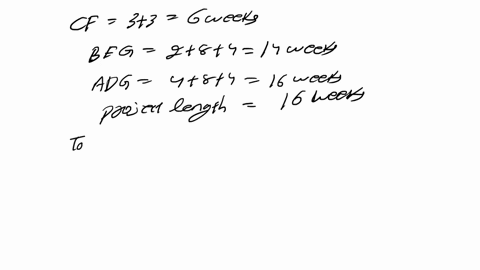 CF = 3+3 = 6 weeks
BEG = 2+8+4 = 14 weeks
ADG = 4+8+4 = 16 weeks
project length = 16 weeks
To